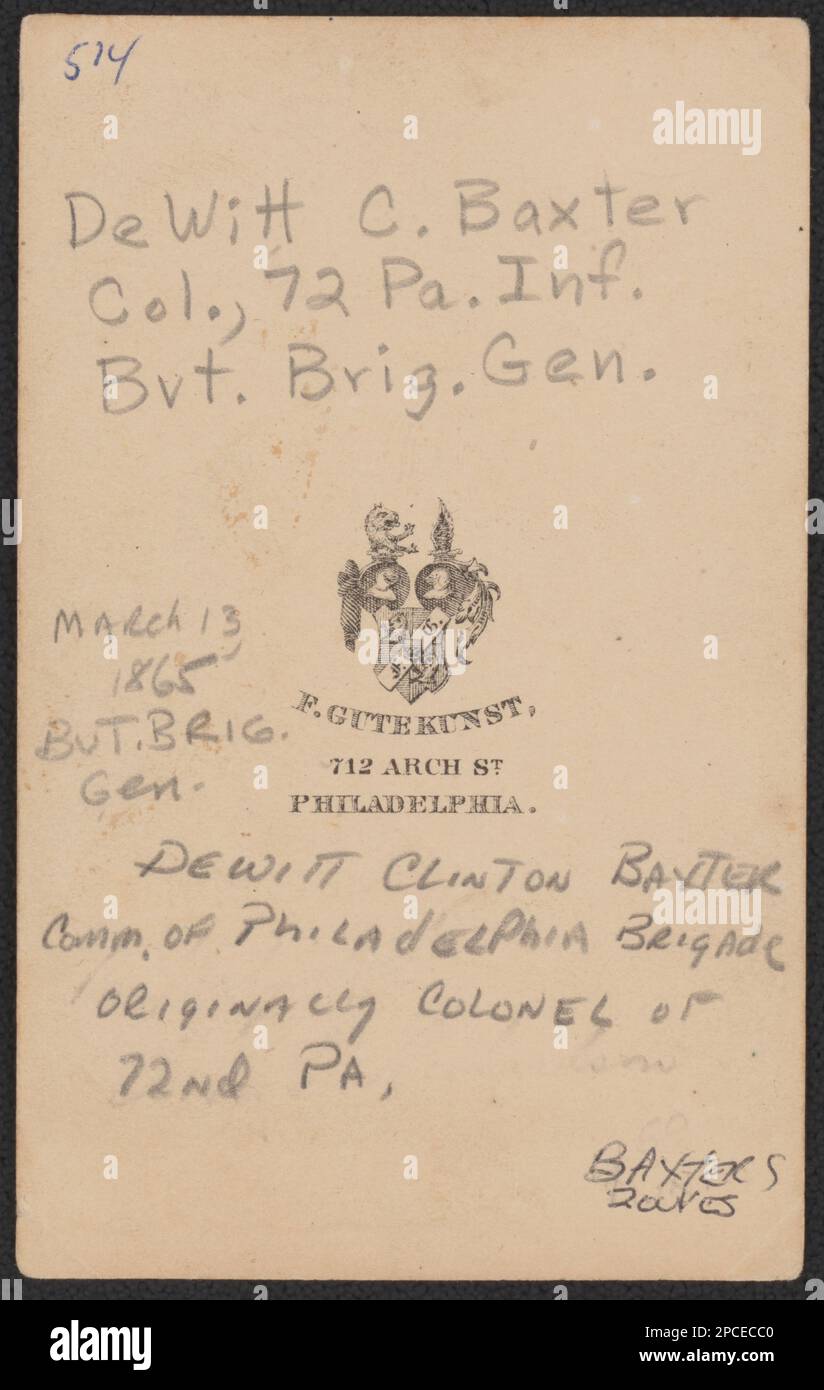 514
DeWitt C. Baxter
Col., 72 Pa. Inf.
Bvt. Brig. Gen.
MARCH 13
1865
BVT. BRIG.
Gen.
F. GUTEKUNST,
712 ARCH ST
PHILADELPHIA.
DEWITT CLINTON BAXTER
COMM. OF PHILADELPHIA BRIGADE
ORIGINALLY COLONEL OF
72nd PA,
BAXTERS
ZOUVES
alamy
Image ID: 2PCECC0
www.alamy.com